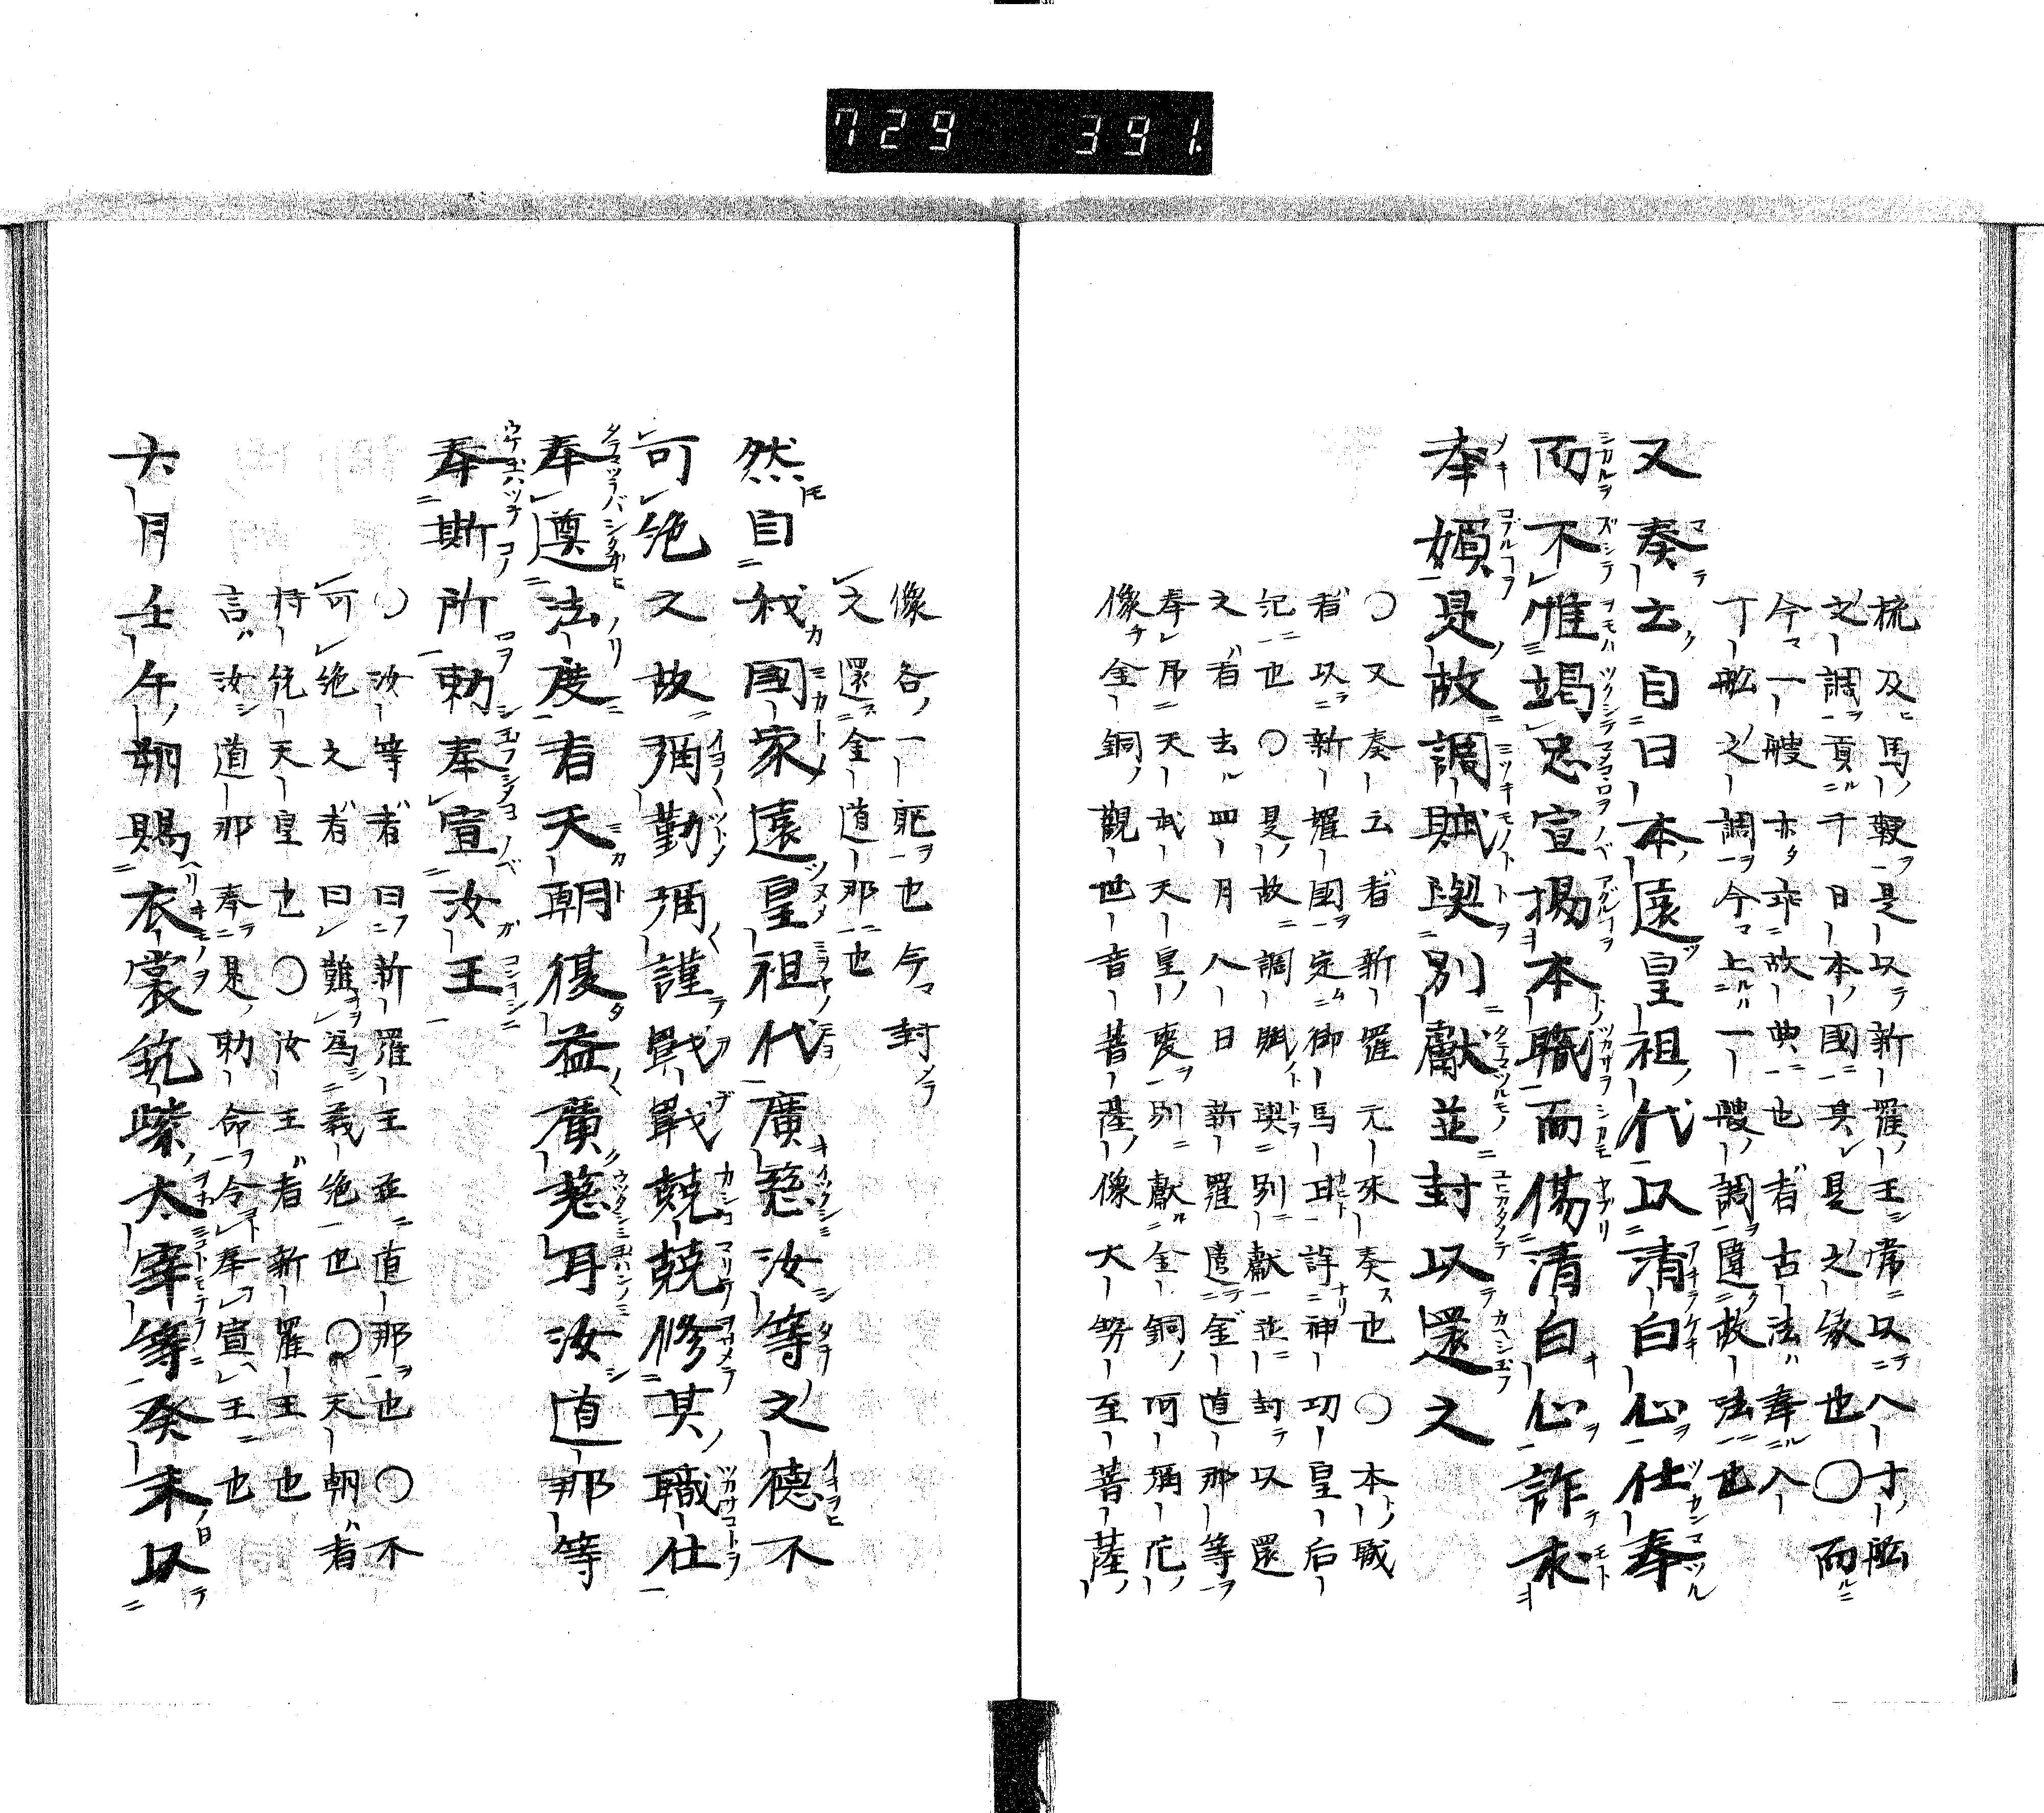 729 391
梳及馬鞭是以新羅王常以八十船
之調貢于日本國其是之縁也〇而
今一艘亦乖故典也者古法奉八
丁船之調今上一艘調違故法也
又奏云自日本遠皇祖代以清白心仕奉
而不惟竭忠宣揚本職而傷清白心詐求
幸媚是故調賦與別獻並封以還之
〇又奏云者新羅元来奏也〇本職
者以新羅國定御馬耳詳神功皇后
記也〇是故調賦與別獻並封以還
之者去四月八日新羅遣金道那等
奉弔天武天皇喪別獻金銅阿彌陀
像金銅觀世音菩薩像大勢至菩薩
像各一躯也今封
之還金道那也
然自我國家遠皇祖代廣慈汝等之德不
可絶之故彌勤彌謹戰戰兢兢修其職仕
奉遵法度者天朝復益廣慈耳汝道那等
奉斯所勅奉宣汝王
〇汝等者曰新羅王並道那也〇不
可絶之者曰難爲義絶也〇天朝者
持統天皇也〇汝王者新羅王也
言汝道那奉是勅命令奉宣王也
六月壬午朔賜衣裳筑紫太宰等癸未以